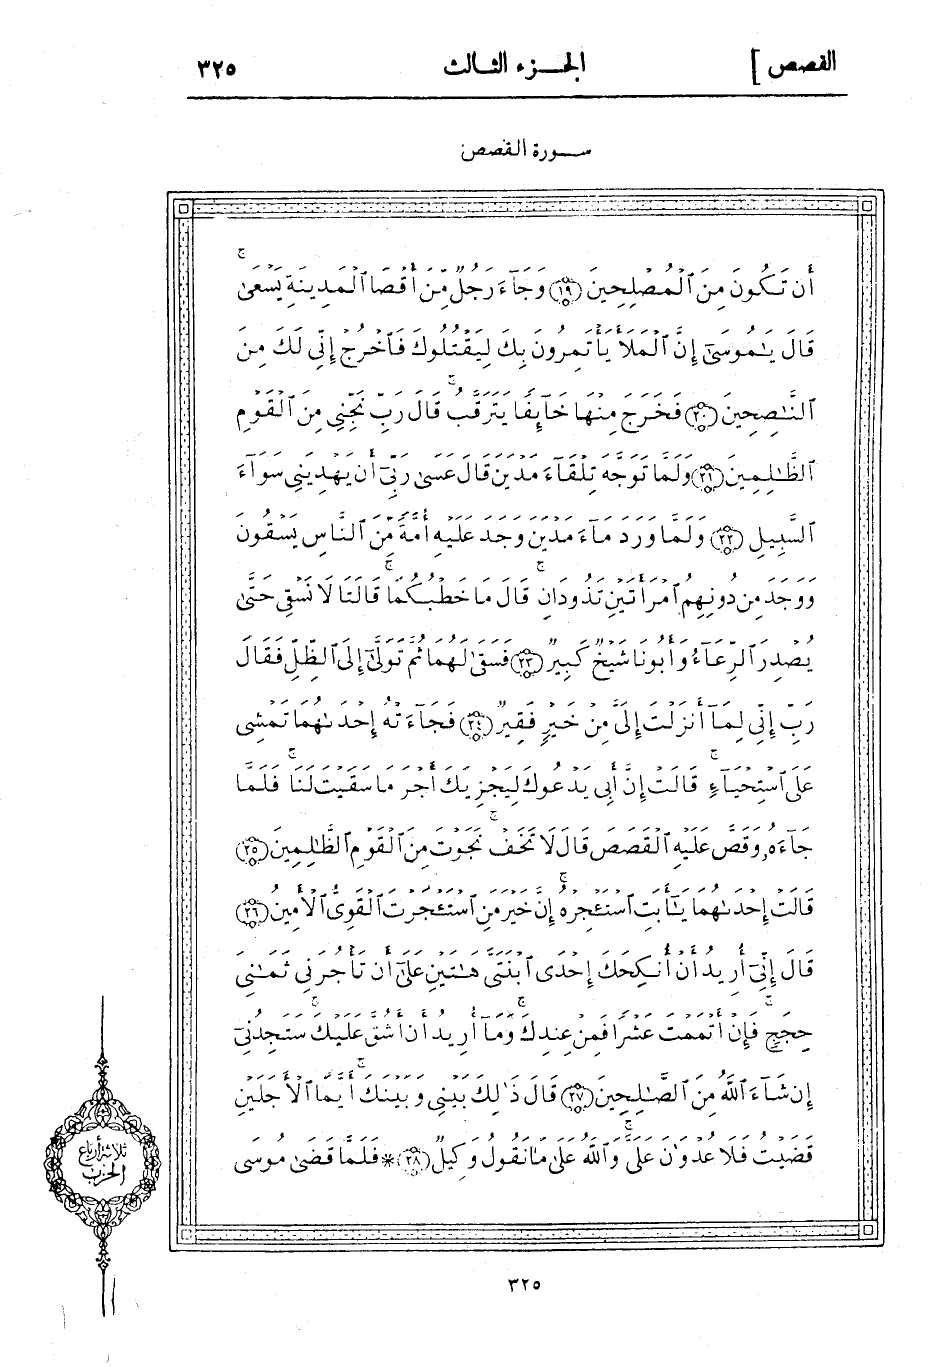 القصص ] الجزء الثالث ٣٢٥
سورة القصص
أَن تَكُونَ مِنَ ٱلْمُصْلِحِينَ ﴿١٩﴾ وَجَآءَ رَجُلٌ مِّنْ أَقْصَا ٱلْمَدِينَةِ يَسْعَىٰ
قَالَ يَٰمُوسَىٰٓ إِنَّ ٱلْمَلَأَ يَأْتَمِرُونَ بِكَ لِيَقْتُلُوكَ فَٱخْرُجْ إِنِّى لَكَ مِنَ
ٱلنَّٰصِحِينَ ﴿٢٠﴾ فَخَرَجَ مِنْهَا خَآئِفًا يَتَرَقَّبُ ۖ قَالَ رَبِّ نَجِّنِى مِنَ ٱلْقَوْمِ
ٱلظَّٰلِمِينَ ﴿٢١﴾ وَلَمَّا تَوَجَّهَ تِلْقَآءَ مَدْيَنَ قَالَ عَسَىٰ رَبِّىٓ أَن يَهْدِيَنِى سَوَآءَ
ٱلسَّبِيلِ ﴿٢٢﴾ وَلَمَّا وَرَدَ مَآءَ مَدْيَنَ وَجَدَ عَلَيْهِ أُمَّةً مِّنَ ٱلنَّاسِ يَسْقُونَ
وَوَجَدَ مِن دُونِهِمُ ٱمْرَأَتَيْنِ تَذُودَانِ ۚ قَالَ مَا خَطْبُكُمَا ۚ قَالَتَا لَا نَسْقِى حَتَّىٰ
يُصْدِرَ ٱلرِّعَآءُ وَأَبُونَا شَيْخٌ كَبِيرٌ ﴿٢٣﴾ فَسَقَىٰ لَهُمَا ثُمَّ تَوَلَّىٰٓ إِلَى ٱلظِّلِّ فَقَالَ
رَبِّ إِنِّى لِمَآ أَنزَلْتَ إِلَىَّ مِنْ خَيْرٍ فَقِيرٌ ﴿٢٤﴾ فَجَآءَتْهُ إِحْدَىٰهُمَا تَمْشِى
عَلَى ٱسْتِحْيَآءٍ ۚ قَالَتْ إِنَّ أَبِى يَدْعُوكَ لِيَجْزِيَكَ أَجْرَ مَا سَقَيْتَ لَنَا ۚ فَلَمَّا
جَآءَهُۥ وَقَصَّ عَلَيْهِ ٱلْقَصَصَ قَالَ لَا تَخَفْ ۚ نَجَوْتَ مِنَ ٱلْقَوْمِ ٱلظَّٰلِمِينَ ﴿٢٥﴾
قَالَتْ إِحْدَىٰهُمَا يَٰٓأَبَتِ ٱسْتَـْٔجِرْهُ ۚ إِنَّ خَيْرَ مَنِ ٱسْتَـْٔجَرْتَ ٱلْقَوِىُّ ٱلْأَمِينُ ﴿٢٦﴾
قَالَ إِنِّىٓ أُرِيدُ أَنْ أُنكِحَكَ إِحْدَى ٱبْنَتَىَّ هَٰتَيْنِ عَلَىٰٓ أَن تَأْجُرَنِى ثَمَٰنِىَ
حِجَجٍ ۖ فَإِنْ أَتْمَمْتَ عَشْرًا فَمِنْ عِندِكَ ۖ وَمَآ أُرِيدُ أَنْ أَشُقَّ عَلَيْكَ ۚ سَتَجِدُنِىٓ
إِن شَآءَ ٱللَّهُ مِنَ ٱلصَّٰلِحِينَ ﴿٢٧﴾ قَالَ ذَٰلِكَ بَيْنِى وَبَيْنَكَ ۖ أَيَّمَا ٱلْأَجَلَيْنِ
قَضَيْتُ فَلَا عُدْوَٰنَ عَلَىَّ ۖ وَٱللَّهُ عَلَىٰ مَا نَقُولُ وَكِيلٌ ﴿٢٨﴾ * فَلَمَّا قَضَىٰ مُوسَى
ثلاثة أرباع
الحزب
٣٢٥